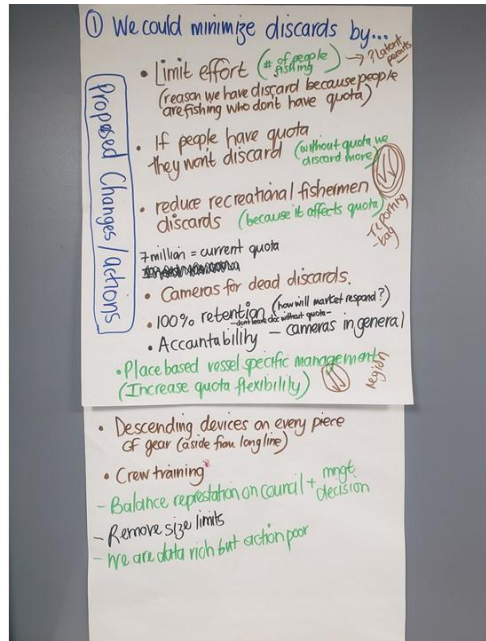 ① We could minimize discards by...
Proposed Changes/actions
• Limit effort (# of people fishing) → ? Latent permits
(reason we have discard because people
are fishing who don't have quota)
• If people have quota
they won't discard (without quota we
discard more)
• reduce recreational fishermen
discards (because it affects quota)
- reporting
- tag
7 million = current quota
• Cameras for dead discards.
• 100% retention (how will market respond?)
- don't leave doc without quota -
• Accountability - cameras in general
• Place based vessel specific management
(Increase quota flexibility)
region
• Descending devices on every piece
of gear (aside from longline)
• Crew training*
- Balance represtation on council + mngt
decision
- Remove size limits
- We are data rich but action poor